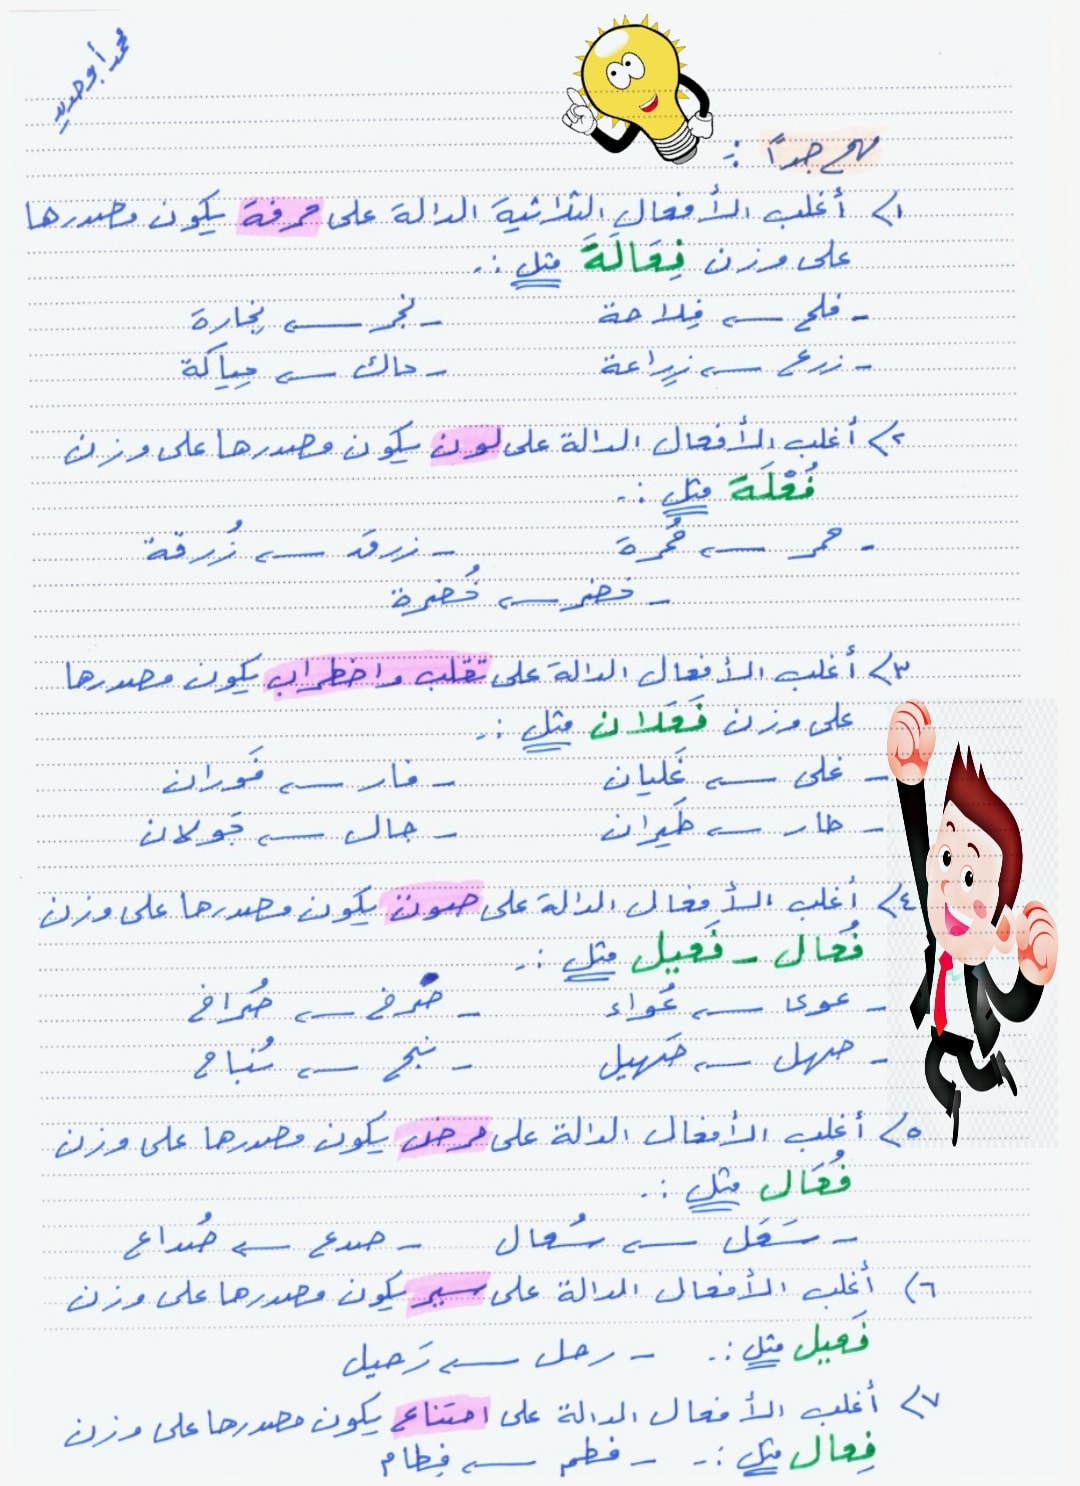 محمد أبو حديد
مهم جداً :-
١> أغلب الأفعال الثلاثية الدالة على حرفة يكون مصدرها
على وزن فِعَالَة مثل :-
- فلح ← فِلاحة - نجر ← نِجارة
- زرع ← زِراعة - حاك ← حِياكة
٢> أغلب الأفعال الدالة على لون يكون مصدرها على وزن
فُعْلَة مثل :-
- حمر ← حُمرة - زرق ← زُرقة
- خضر ← خُضرة
٣> أغلب الأفعال الدالة على تقلب واضطراب يكون مصدرها
على وزن فَعَلان مثل :-
- غلى ← غَليان - فار ← فَوران
- طار ← طَيران - جال ← جَولان
٤> أغلب الأفعال الدالة على صوت يكون مصدرها على وزن
فُعال - فَعيل مثل :-
- عوى ← عُواء - صرخ ← صُراخ
- صهل ← صَهيل - نبح ← نُباح
٥> أغلب الأفعال الدالة على مرض يكون مصدرها على وزن
فُعَال مثل :-
- سَعَل ← سُعال - صدع ← صُداع
٦) أغلب الأفعال الدالة على سير يكون مصدرها على وزن
فَعيل مثل :- - رحل ← رَحيل
٧> أغلب الأفعال الدالة على امتناع يكون مصدرها على وزن
فِعال مثل :- - فطم ← فِطام